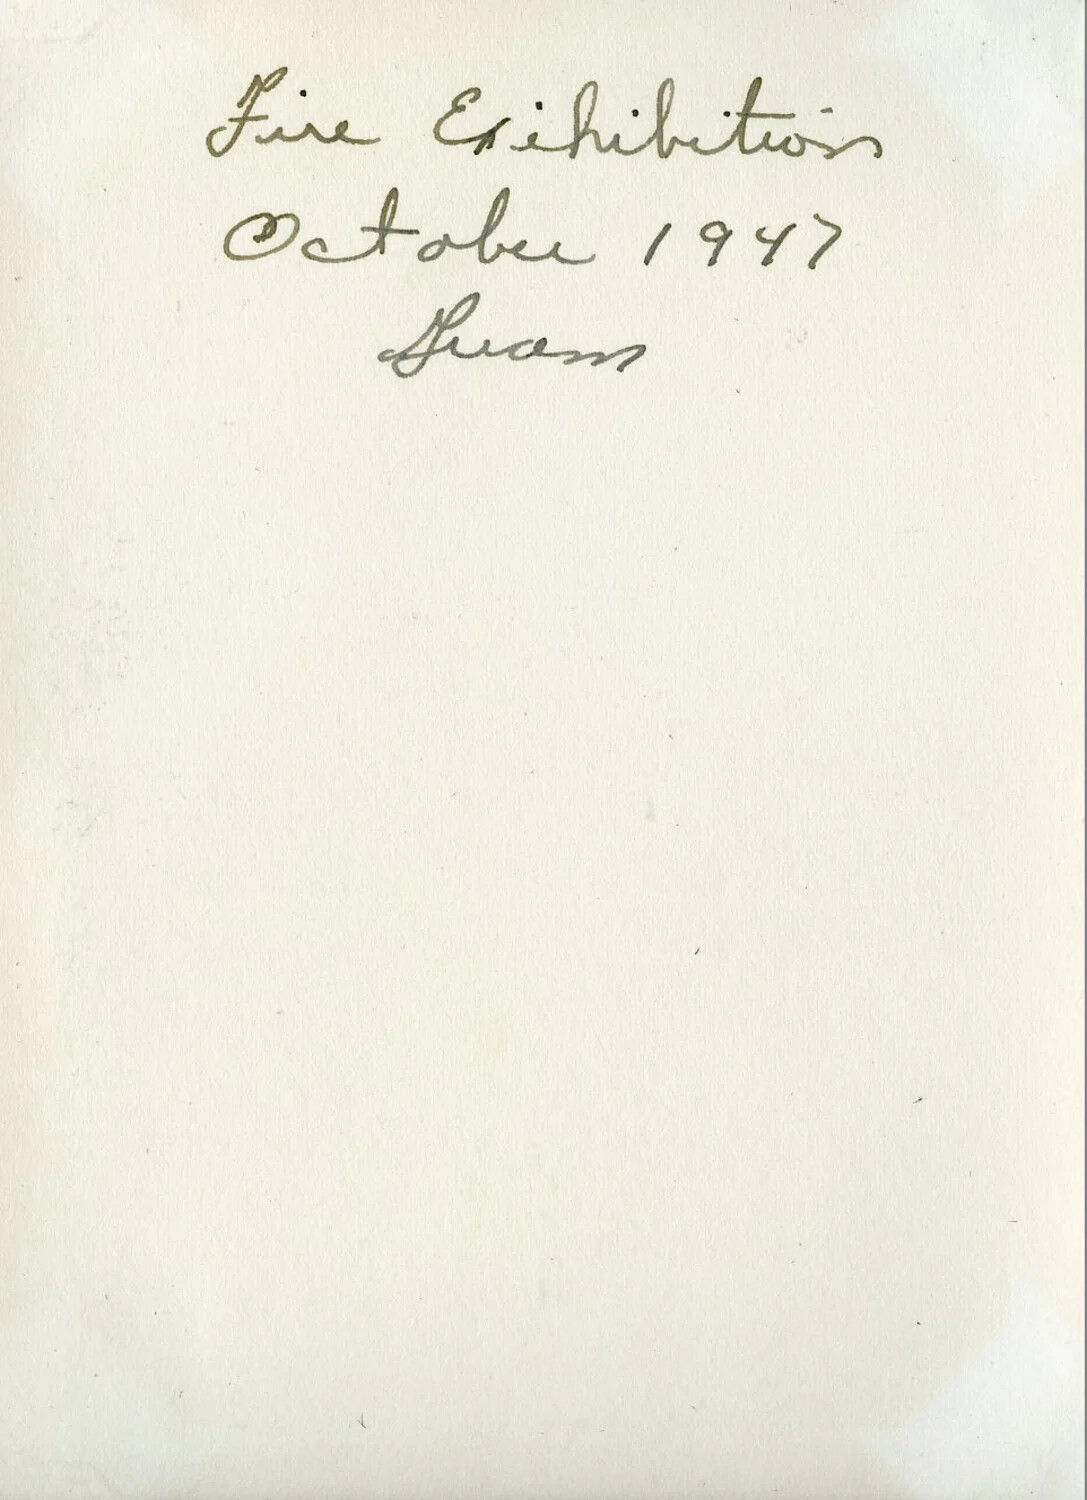 Fire Exihibition
October 1947
Guam